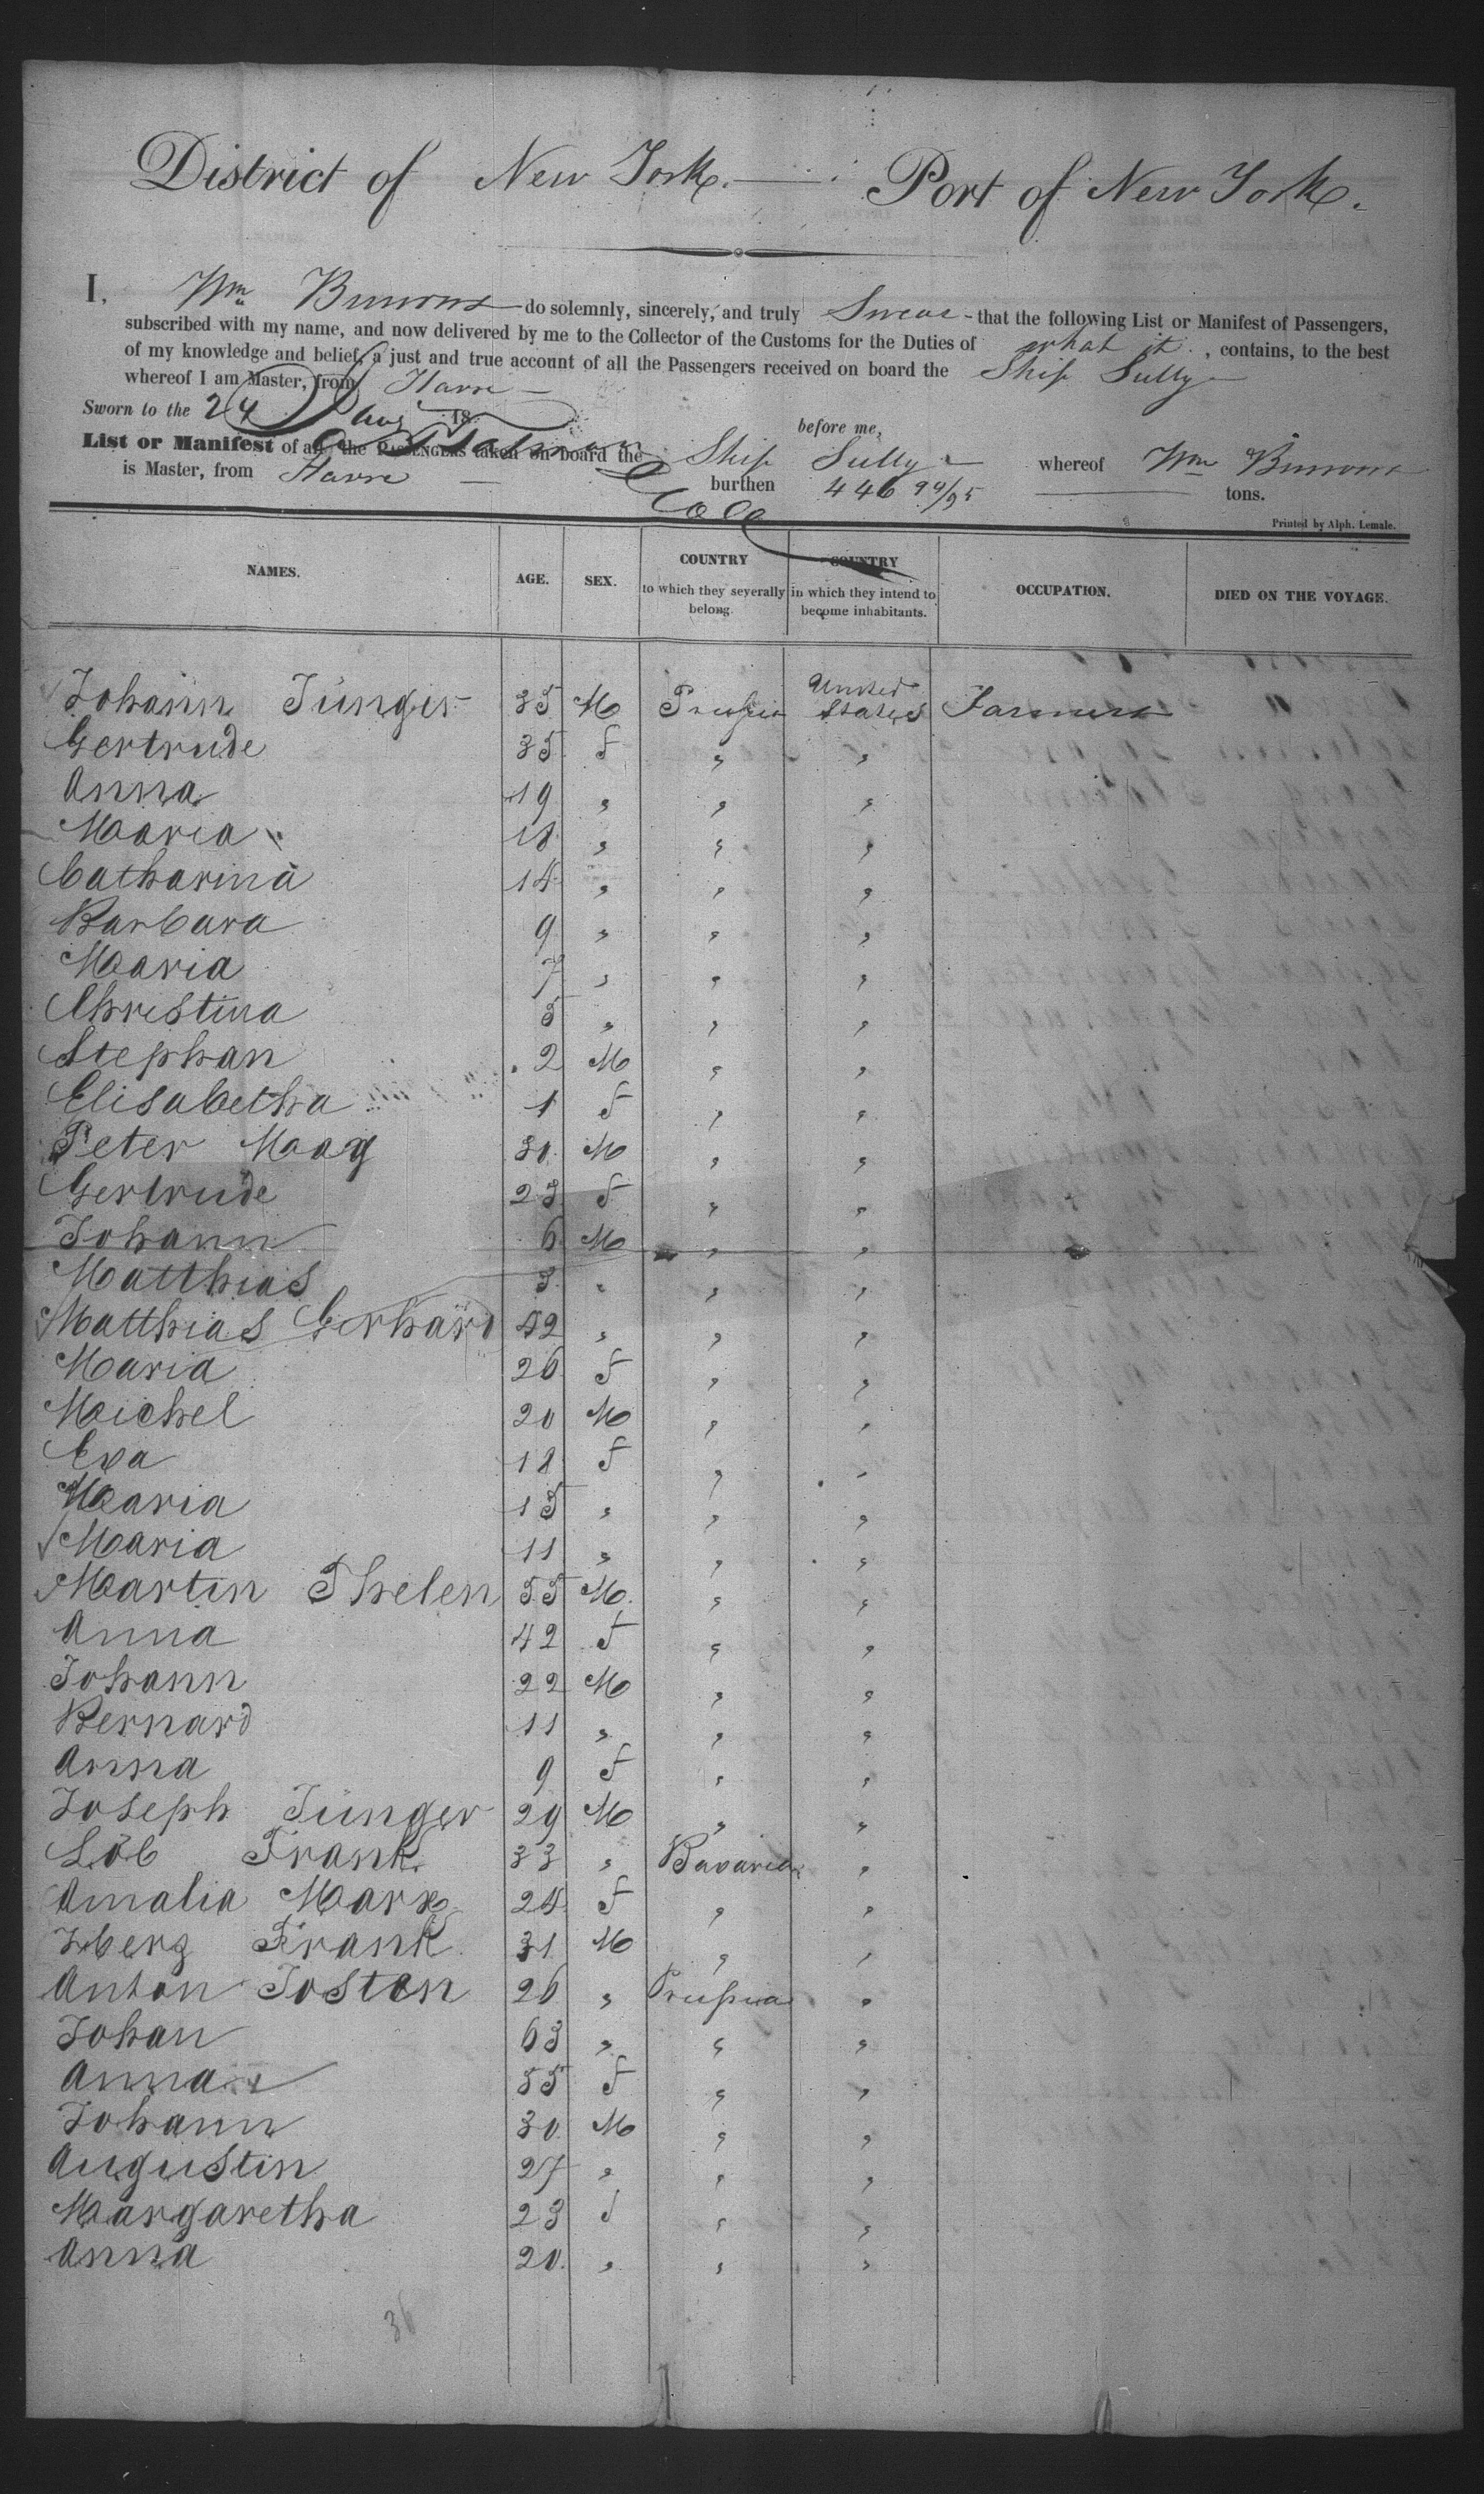 District of New York. Port of New York.
I, Wm Burrows do solemnly, sincerely, and truly Swear - that the following List or Manifest of Passengers,
subscribed with my name, and now delivered by me to the Collector of the Customs for the Duties of what it , contains, to the best
of my knowledge and belief, a just and true account of all the Passengers received on board the Ship Sully
whereof I am Master, from Havre
Sworn to the 24 Aug 18 before me,
List or Manifest of all the PASSENGERS taken on board the Ship Sully whereof Wm Burrows
is Master, from Havre burthen 446 94/95 tons.
Printed by Alph. Lemale.
NAMES. AGE. SEX. COUNTRY to which they severally belong. COUNTRY in which they intend to become inhabitants. OCCUPATION. DIED ON THE VOYAGE.
Johann Jünger 35 M Prussia United States Farmers
Gertrude 35 F " "
Anna 19 " " "
Maria 18 " " "
Catharina 14 " " "
Barbara 9 " " "
Maria 7 " " "
Christina 5 " " "
Stephan 2 M " "
Elisabetha 1 F " "
Peter Maag 30 M " "
Gertrude 23 F " "
Johann 6 M " "
Matthias 3 " " "
Matthias Gerhard 42 " " "
Maria 26 F " "
Michel 20 M " "
Eva 18 F " "
Maria 15 " " "
Maria 11 " " "
Martin Thelen 55 M " "
Anna 42 F " "
Johann 22 M " "
Bernard 11 " " "
Anna 9 F " "
Joseph Jünger 29 M " "
Löb Frank 33 " Bavaria "
Amalia Marx 24 F " "
Frank 31 M " "
Anton Josten 26 " Prussia "
Johan 63 " " "
Anna 55 F " "
Johann 30 M " "
Augustin 27 " " "
Margaretha 23 F " "
Anna 20 " " "
36